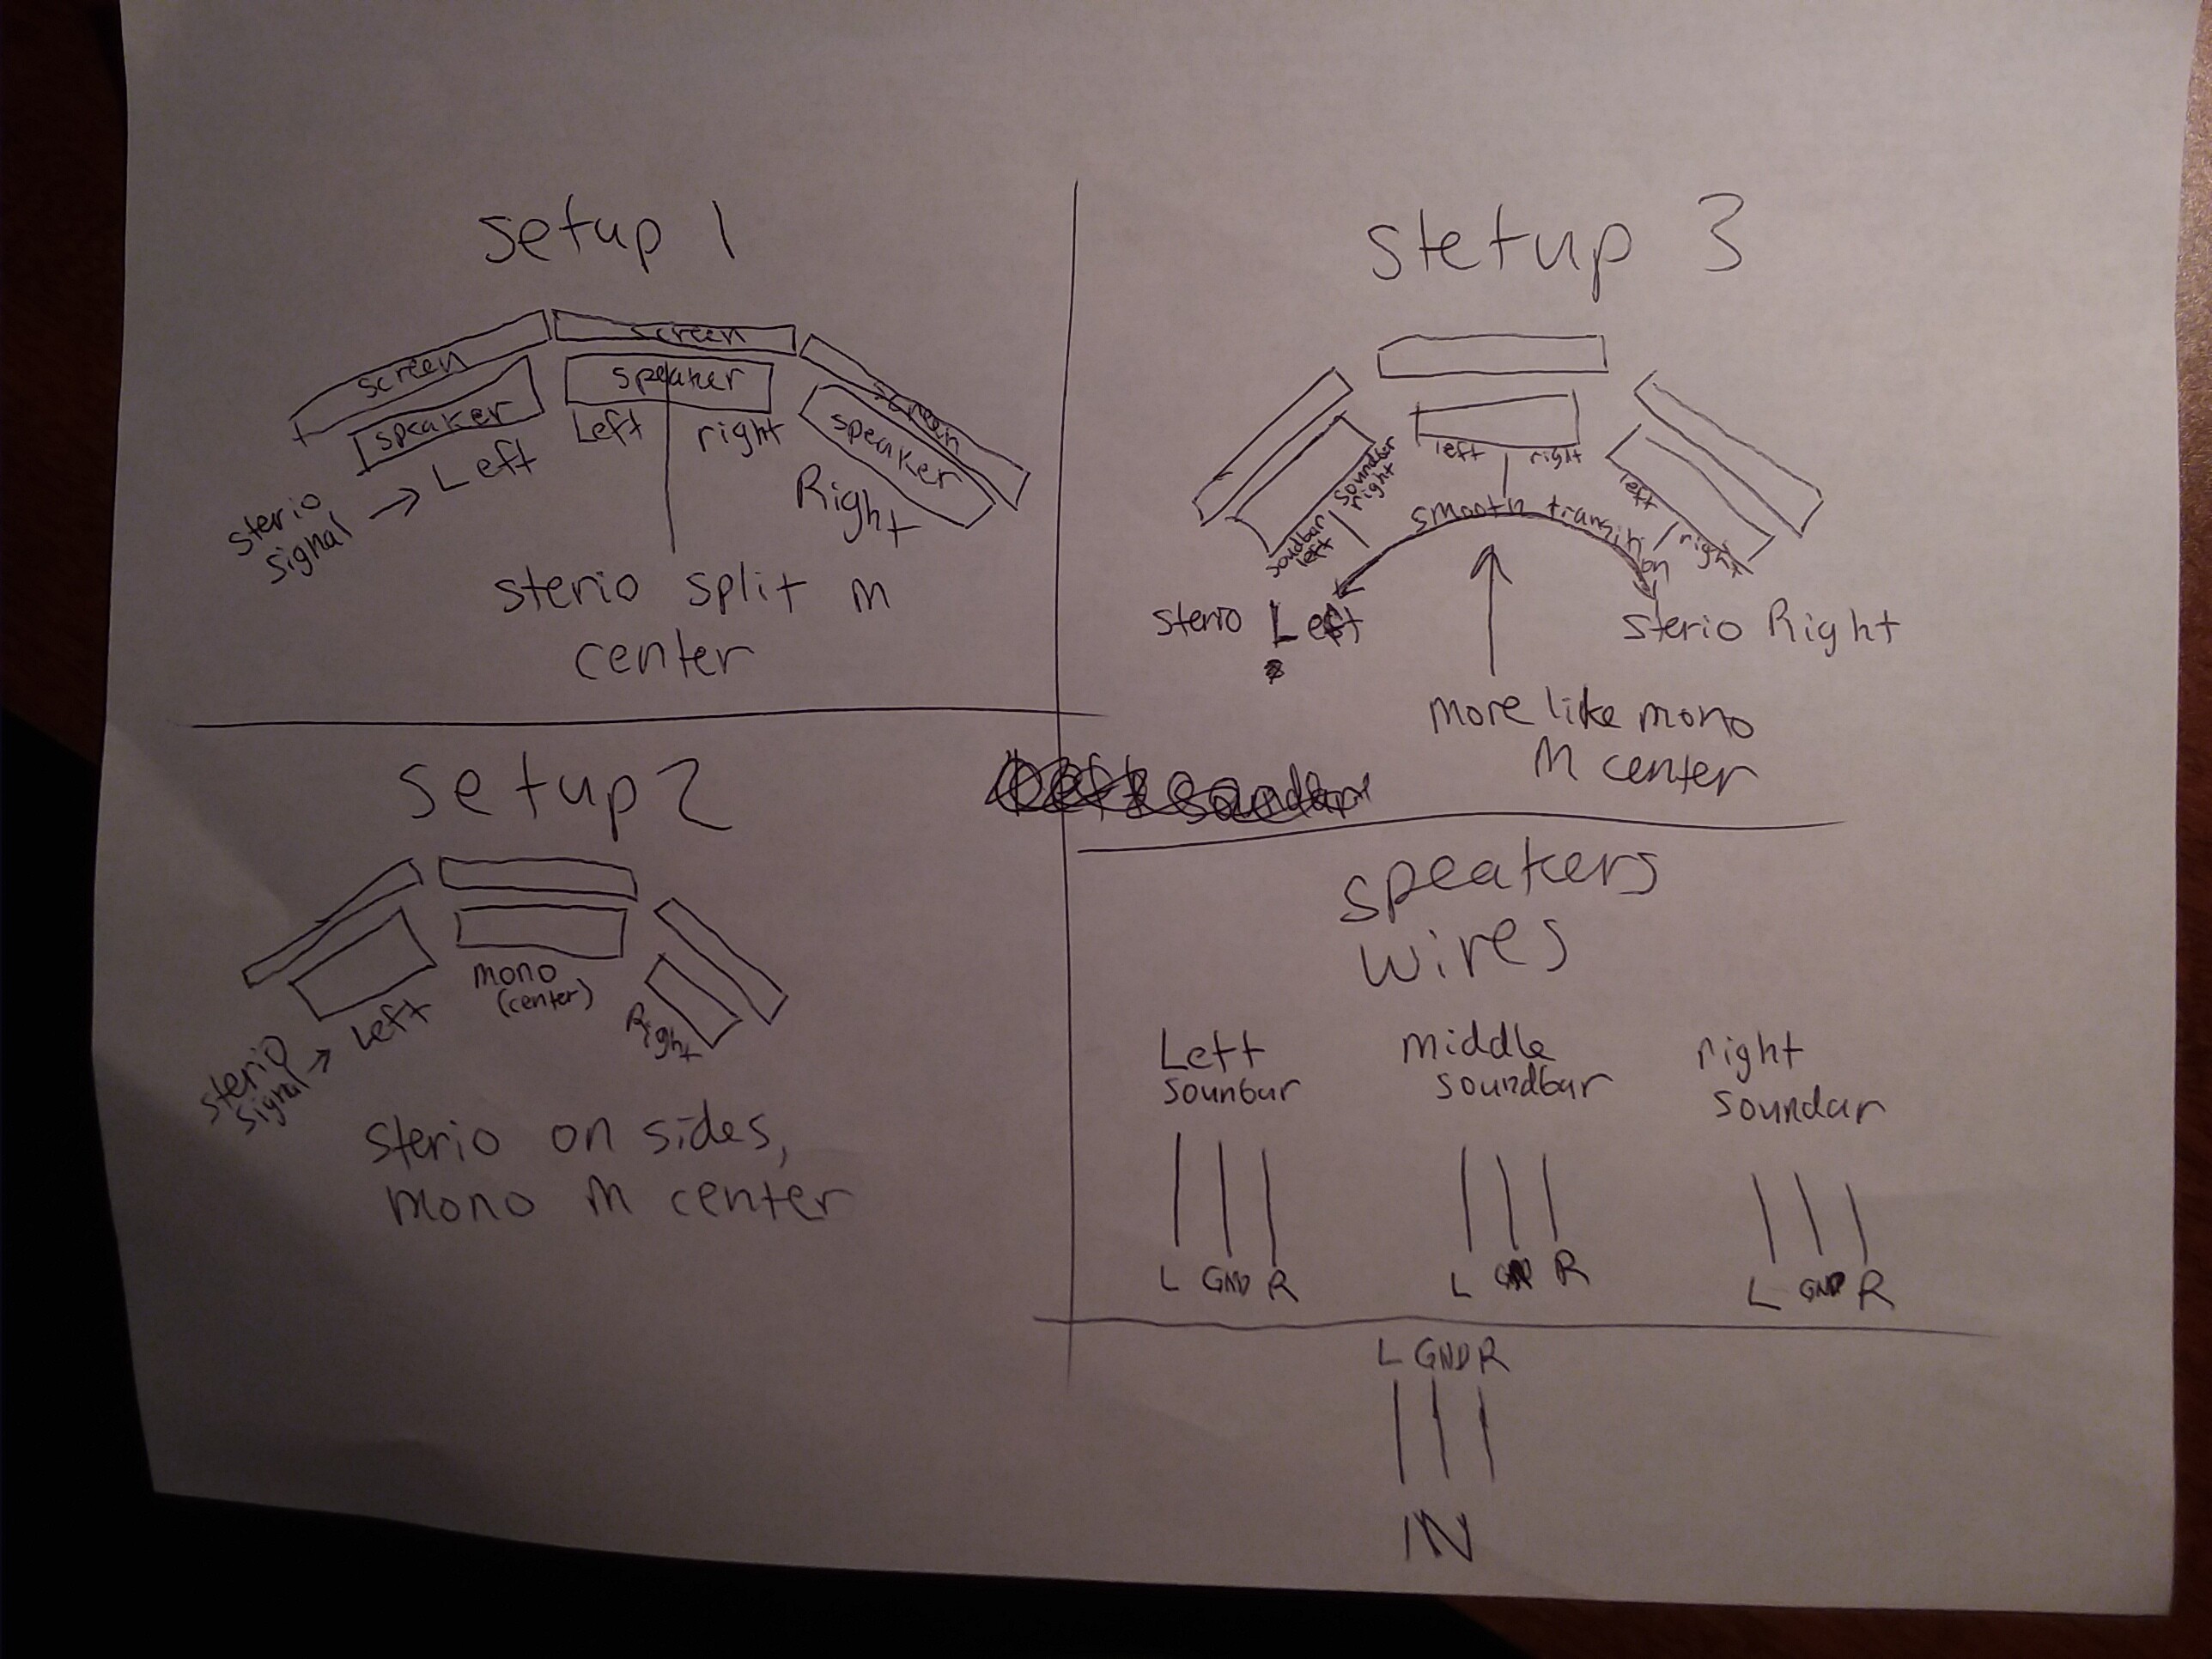 setup 1
screen
screen
screen
speaker
speaker
speaker
Left
Left
right
Right
sterio
signal
sterio split in
center
setup 2
mono
(center)
Left
Right
sterio
signal
sterio on sides,
mono in center
stetup 3
soundbar
left
soundbar
right
left
right
left
right
smooth transition
sterio Left
sterio Right
more like mono
in center
speakers
wires
Left
sounbar
middle
soundbar
right
soundar
L GND R
L GND R
L GND R
L GND R
IN